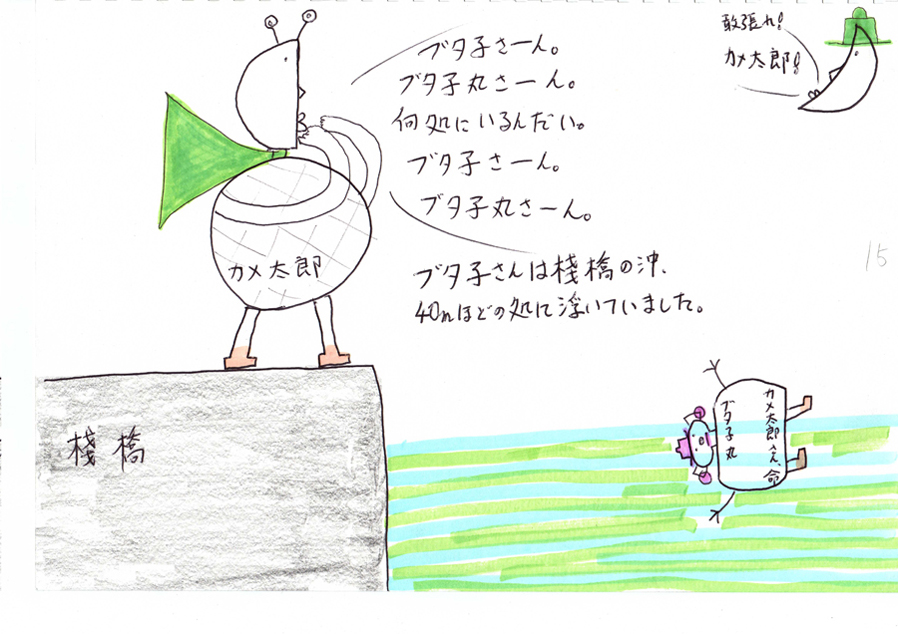 ブタ子さーん。
ブタ子丸さーん。
何処にいるんだい。
ブタ子さーん。
ブタ子丸さーん。
敢張れ!
カメ太郎!
カメ太郎
ブタ子さんは棧橋の沖、
40mほどの処に浮いていました。
15
棧橋
カメ太郎さん、命
ブタ子丸